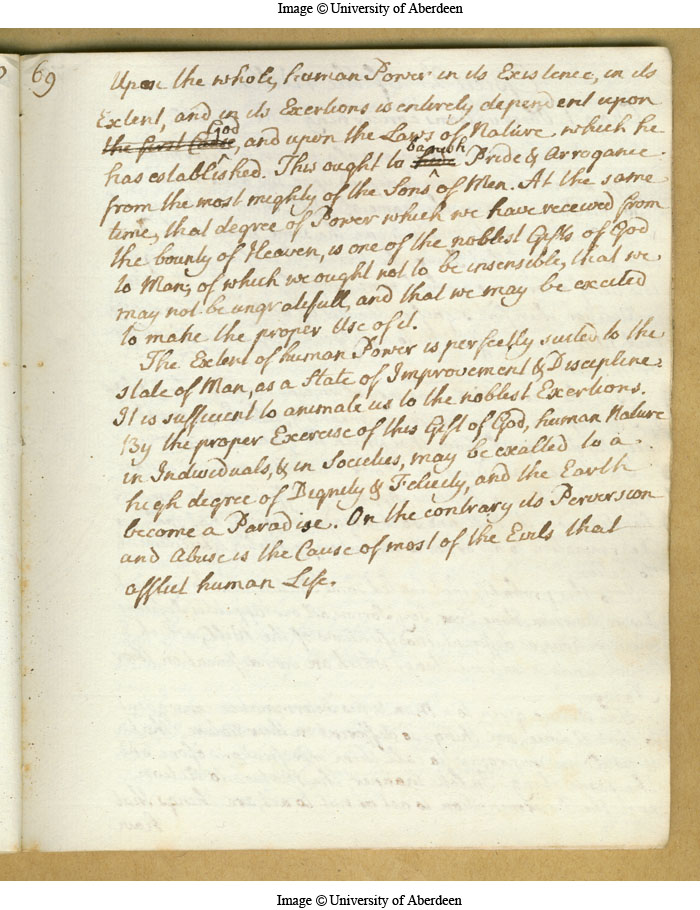 Image © University of Aberdeen
69
Upon the whole, human Power in its Existence, in its
Extent, and in its Exertions is entirely dependent upon
God
the first Cause, and upon the Laws of Nature which he
banish
has established. This ought to Pride & Arrogance
from the most mighty of the Sons of Men. At the same
time, that degree of Power which we have received from
the bounty of Heaven, is one of the noblest Gifts of God
to Man; of which we ought not to be insensible, that we
may not be ungratefull, and that we may be excited
to make the proper Use of it.
The Extent of human Power is perfectly suited to the
state of Man, as a State of Improvement & Discipline.
It is sufficient to animate us to the noblest Exertions.
By the proper Exercise of this Gift of God, human Nature
in Individuals, & in Societies, may be exalted to a
high degree of Dignity & Felicity, and the Earth
become a Paradise. On the contrary its Perversion
and Abuse is the Cause of most of the Evils that
afflict human Life.
Image © University of Aberdeen